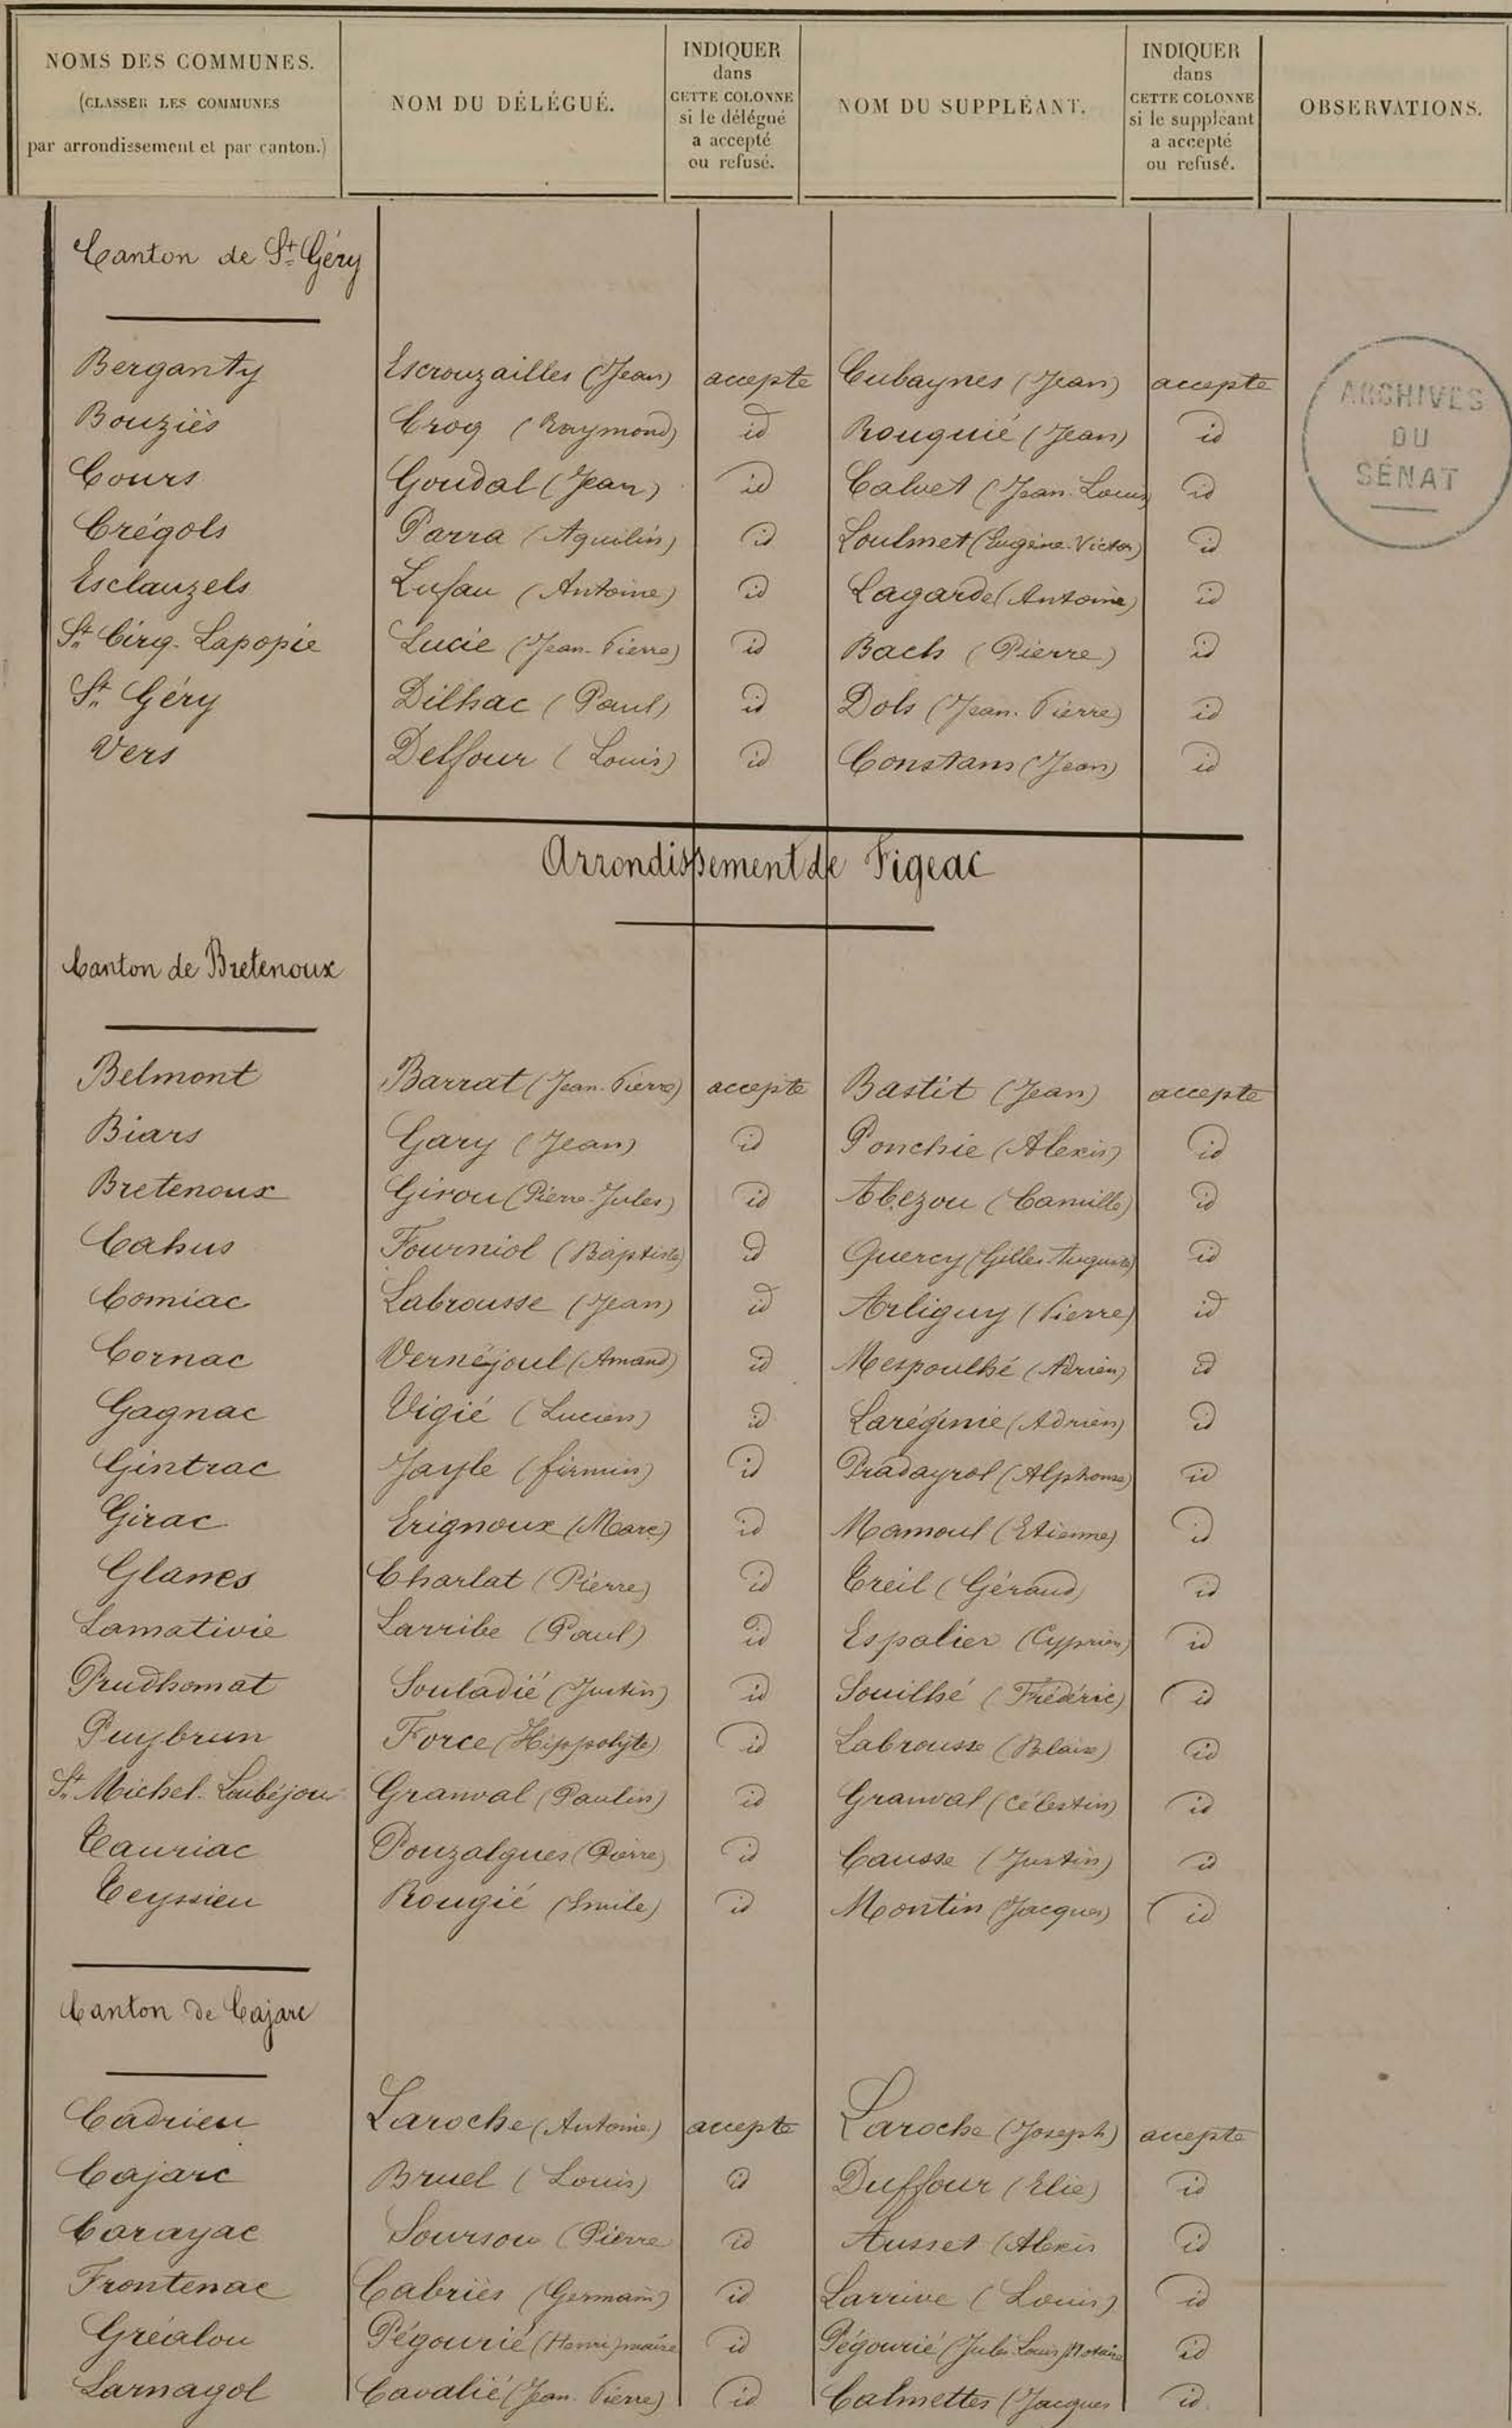 NOMS DES COMMUNES. (CLASSER LES COMMUNES par arrondissement et par canton.)
NOM DU DÉLÉGUÉ.
INDIQUER dans CETTE COLONNE si le délégué a accepté ou refusé.
NOM DU SUPPLÉANT.
INDIQUER dans CETTE COLONNE si le suppléant a accepté ou refusé.
OBSERVATIONS.
Canton de St Géry
ARCHIVES DU SÉNAT
Berganty Escrouzailles (Jean) accepte Cubaynes (Jean) accepte
Bouziès Croq (Raymond) id Rouquié (Jean) id
Cours Goudal (Jean) id Calvet (Jean-Louis) id
Crégols Parra (Aquilin) id Loulmet (Eugène-Victor) id
Esclauzels Lufau (Antoine) id Lagarde (Antoine) id
St Cirq-Lapopie Lucie (Jean-Pierre) id Bach (Pierre) id
St Géry Dilhac (Paul) id Dols (Jean-Pierre) id
Vers Delfour (Louis) id Constans (Jean) id
Arrondissement de Figeac
Canton de Bretenoux
Belmont Barrat (Jean-Pierre) accepte Bastit (Jean) accepte
Biars Gary (Jean) id Ponchie (Alexis) id
Bretenoux Girou (Pierre-Jules) id Abezou (Camille) id
Cahus Fourniol (Baptiste) id Quercy (Gilles-Auguste) id
Comiac Labrousse (Jean) id Arliguy (Pierre) id
Cornac Vernéjoul (Amand) id Mespoulhé (Adrien) id
Gagnac Vigié (Lucien) id Laréginie (Adrien) id
Gintrac Jayle (firmin) id Pradayrol (Alphonse) id
Girac Erignoux (Marc) id Mamoul (Etienne) id
Glanes Charlat (Pierre) id Treil (Géraud) id
Lamativie Larribe (Paul) id Espalier (Cyprien) id
Prudhomat Souladié (Justin) id Souilhé (Frédéric) id
Puybrun Force (Hippolyte) id Labrousse (Blaise) id
St Michel-Loubéjou Granval (Paulin) id Granval (Célestin) id
Tauriac Pouzalgues (Pierre) id Causse (Justin) id
Teyssieu Rougié (Emile) id Montin (Jacques) id
Canton de Cajarc
Cadrieu Laroche (Antoine) accepte Laroche (Joseph) accepte
Cajarc Bruel (Louis) id Duffour (Elie) id
Carayac Soursou (Pierre id Ausset (Alexis id
Frontenac Cabriès (Germain) id Larrive (Louis) id
Gréalou Pégourié (Henri) maire id Pégourié (Jules Louis) Notaire id
Larnagol Cavalié (Jean-Pierre) id Calmettes (Jacques id